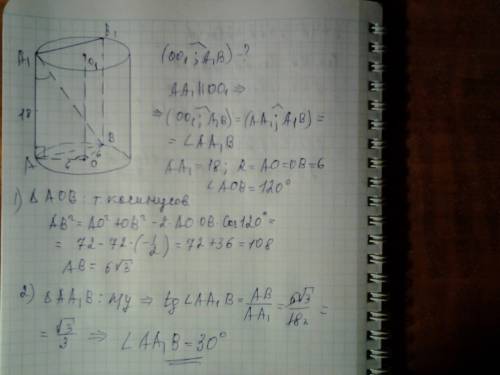 B₁
A₁
O₁
18
B
A
6
O
6
(OO₁; A₁B) - ?
AA₁ || OO₁ ⇒
⇒ (OO₁; A₁B) = (AA₁; A₁B) =
= ∠AA₁B
AA₁ = 18; R = AO = OB = 6
∠AOB = 120°
1) ΔAOB: т. косинусов
AB² = AO² + OB² - 2·AO·OB·cos120° =
= 72 - 72·(-1/2) = 72 + 36 = 108
AB = 6√3
2) ΔAA₁B: п/у ⇒ tg∠AA₁B = AB/AA₁ = 6√3/18 =
= √3/3 ⇒ ∠AA₁B = 30°